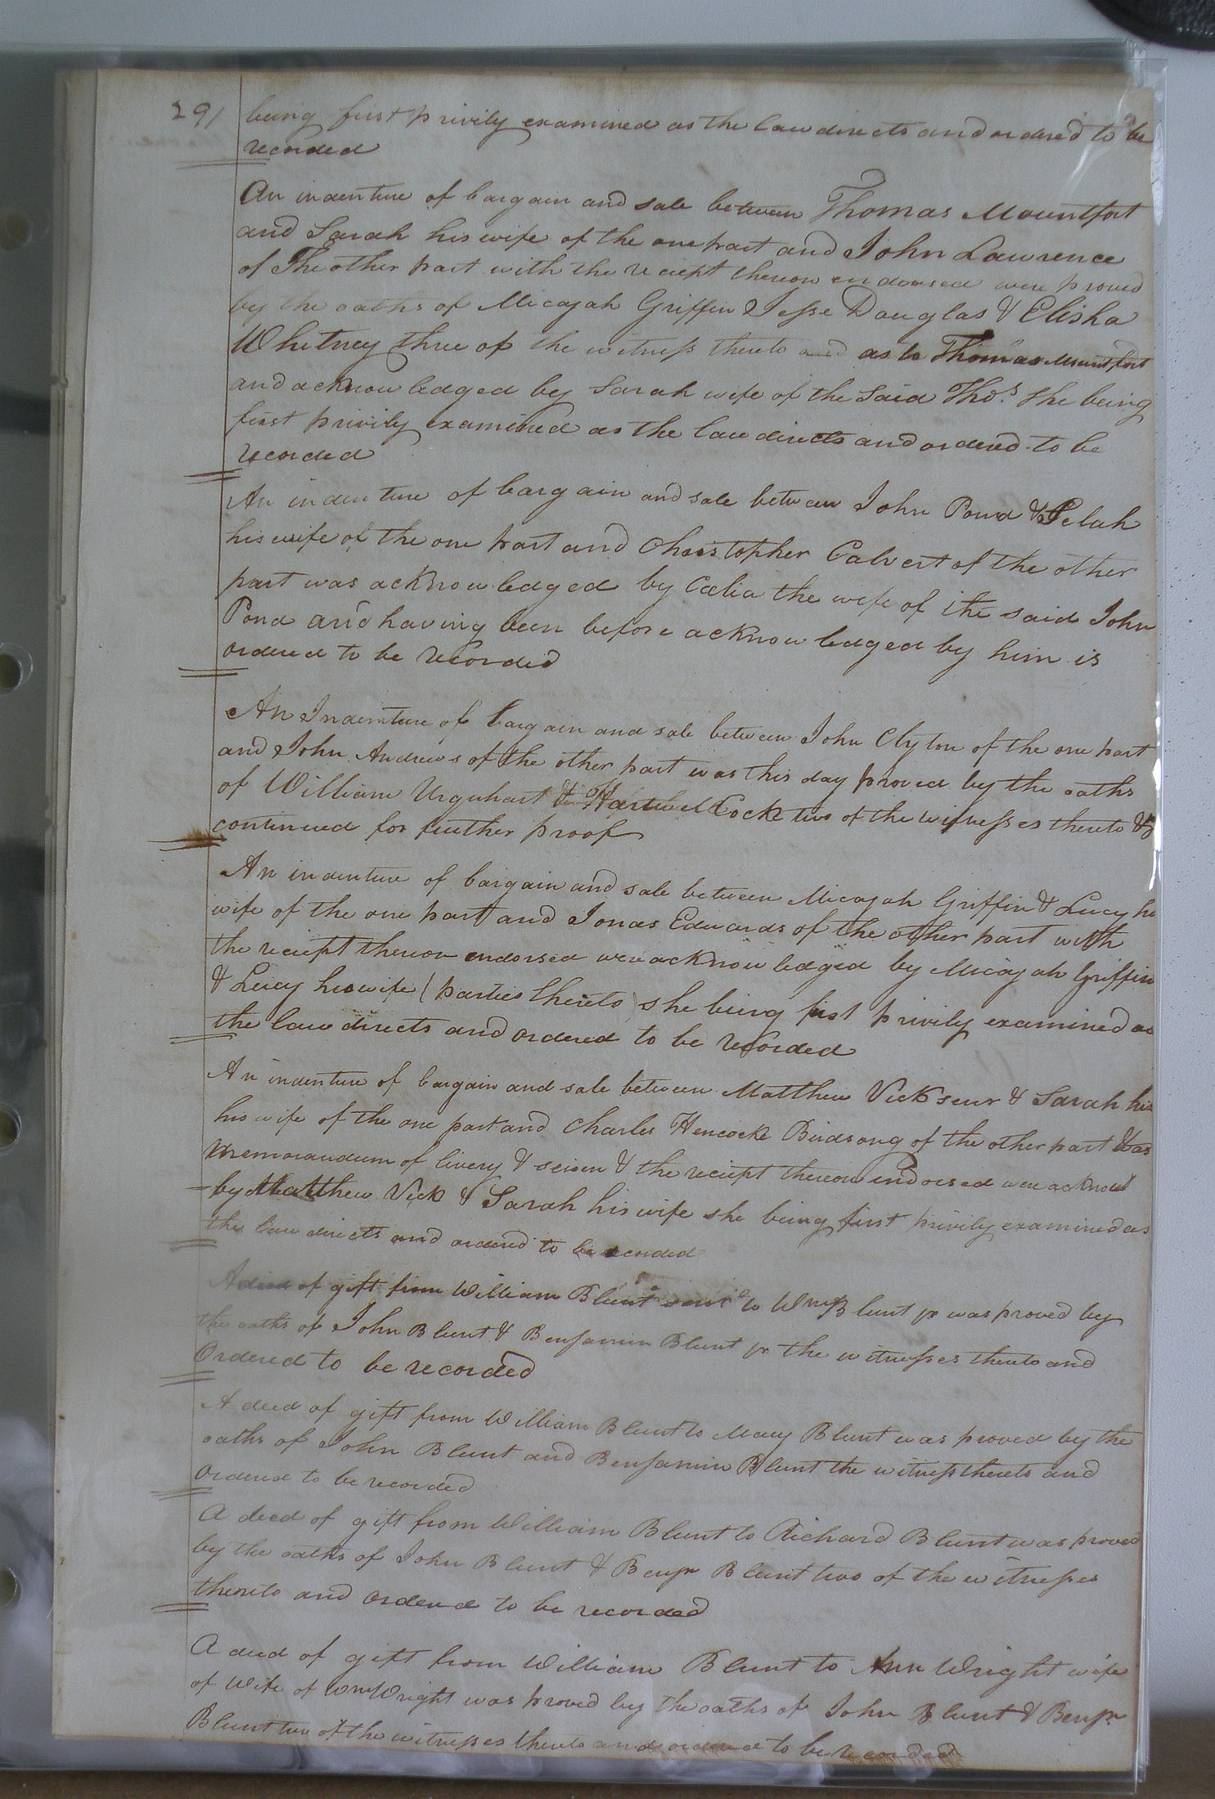 291
being first privily examined as the law directs and ordered to be
recorded
An indenture of bargain and sale between Thomas Mountfort
and Sarah his wife of the one part and John Lawrence
of The other part with the reciept thereon endorsed were proved
by the oaths of Micajah Griffin & Jesse Douglas & Elisha
Whitney three of the witness thereto and as to Thomas Mountfort
and acknowledged by Sarah wife of the said Thos. She being
first privily examined as the law directs and ordered to be
recorded
An indenture of bargain and sale between John Pond & Selah
his wife of the one part and Christopher Calvert of the other
part was acknowledged by Cælia the wife of the said John
Pond and having been before acknowledged by him is
ordered to be recorded
An Indenture of bargain and sale between John Clyton of the one part
and John Andrews of the other part was this day proved by the oaths
of William Urquhart & Hartwell Cocke two of the witnesses thereto &
continued for further proof
An indenture of bargain and sale between Micajah Griffin & Lucy his
wife of the one part and Jonas Edwards of the other part with
the reciept thereon endorsed were acknowledged by Micajah Griffin
& Lucy his wife (parties thereto) she being first privily examined as
the law directs and ordered to be recorded
An indenture of bargain and sale between Matthew Vick senr & Sarah his
his wife of the one part and Charles Hencocke Birdsong of the other part
memorandum of livery & seisen & the reciept thereon endorsed were acknowl
by Matthew Vick & Sarah his wife she being first privily examined as
the law directs and ordered to be recorded
A deed of gift from William Blunt senr to Wm Blunt jr was proved by
the oaths of John Blunt & Benjamin Blunt jr the witnesses thereto and
Ordered to be recorded
A deed of gift from William Blunt to Mary Blunt was proved by the
oaths of John Blunt and Benjamin Blunt the witness thereto and
ordered to be recorded
A deed of gift from William Blunt to Richard Blunt was proved
by the oaths of John Blunt & Benjn Blunt two of the witnesses
thereto and ordered to be recorded
A deed of gift from William Blunt to Ann Wright wife
of Wife of Wm Wright was proved by the oaths of John Blunt & Benjn
Blunt two of the witnesses thereto and ordered to be recorded